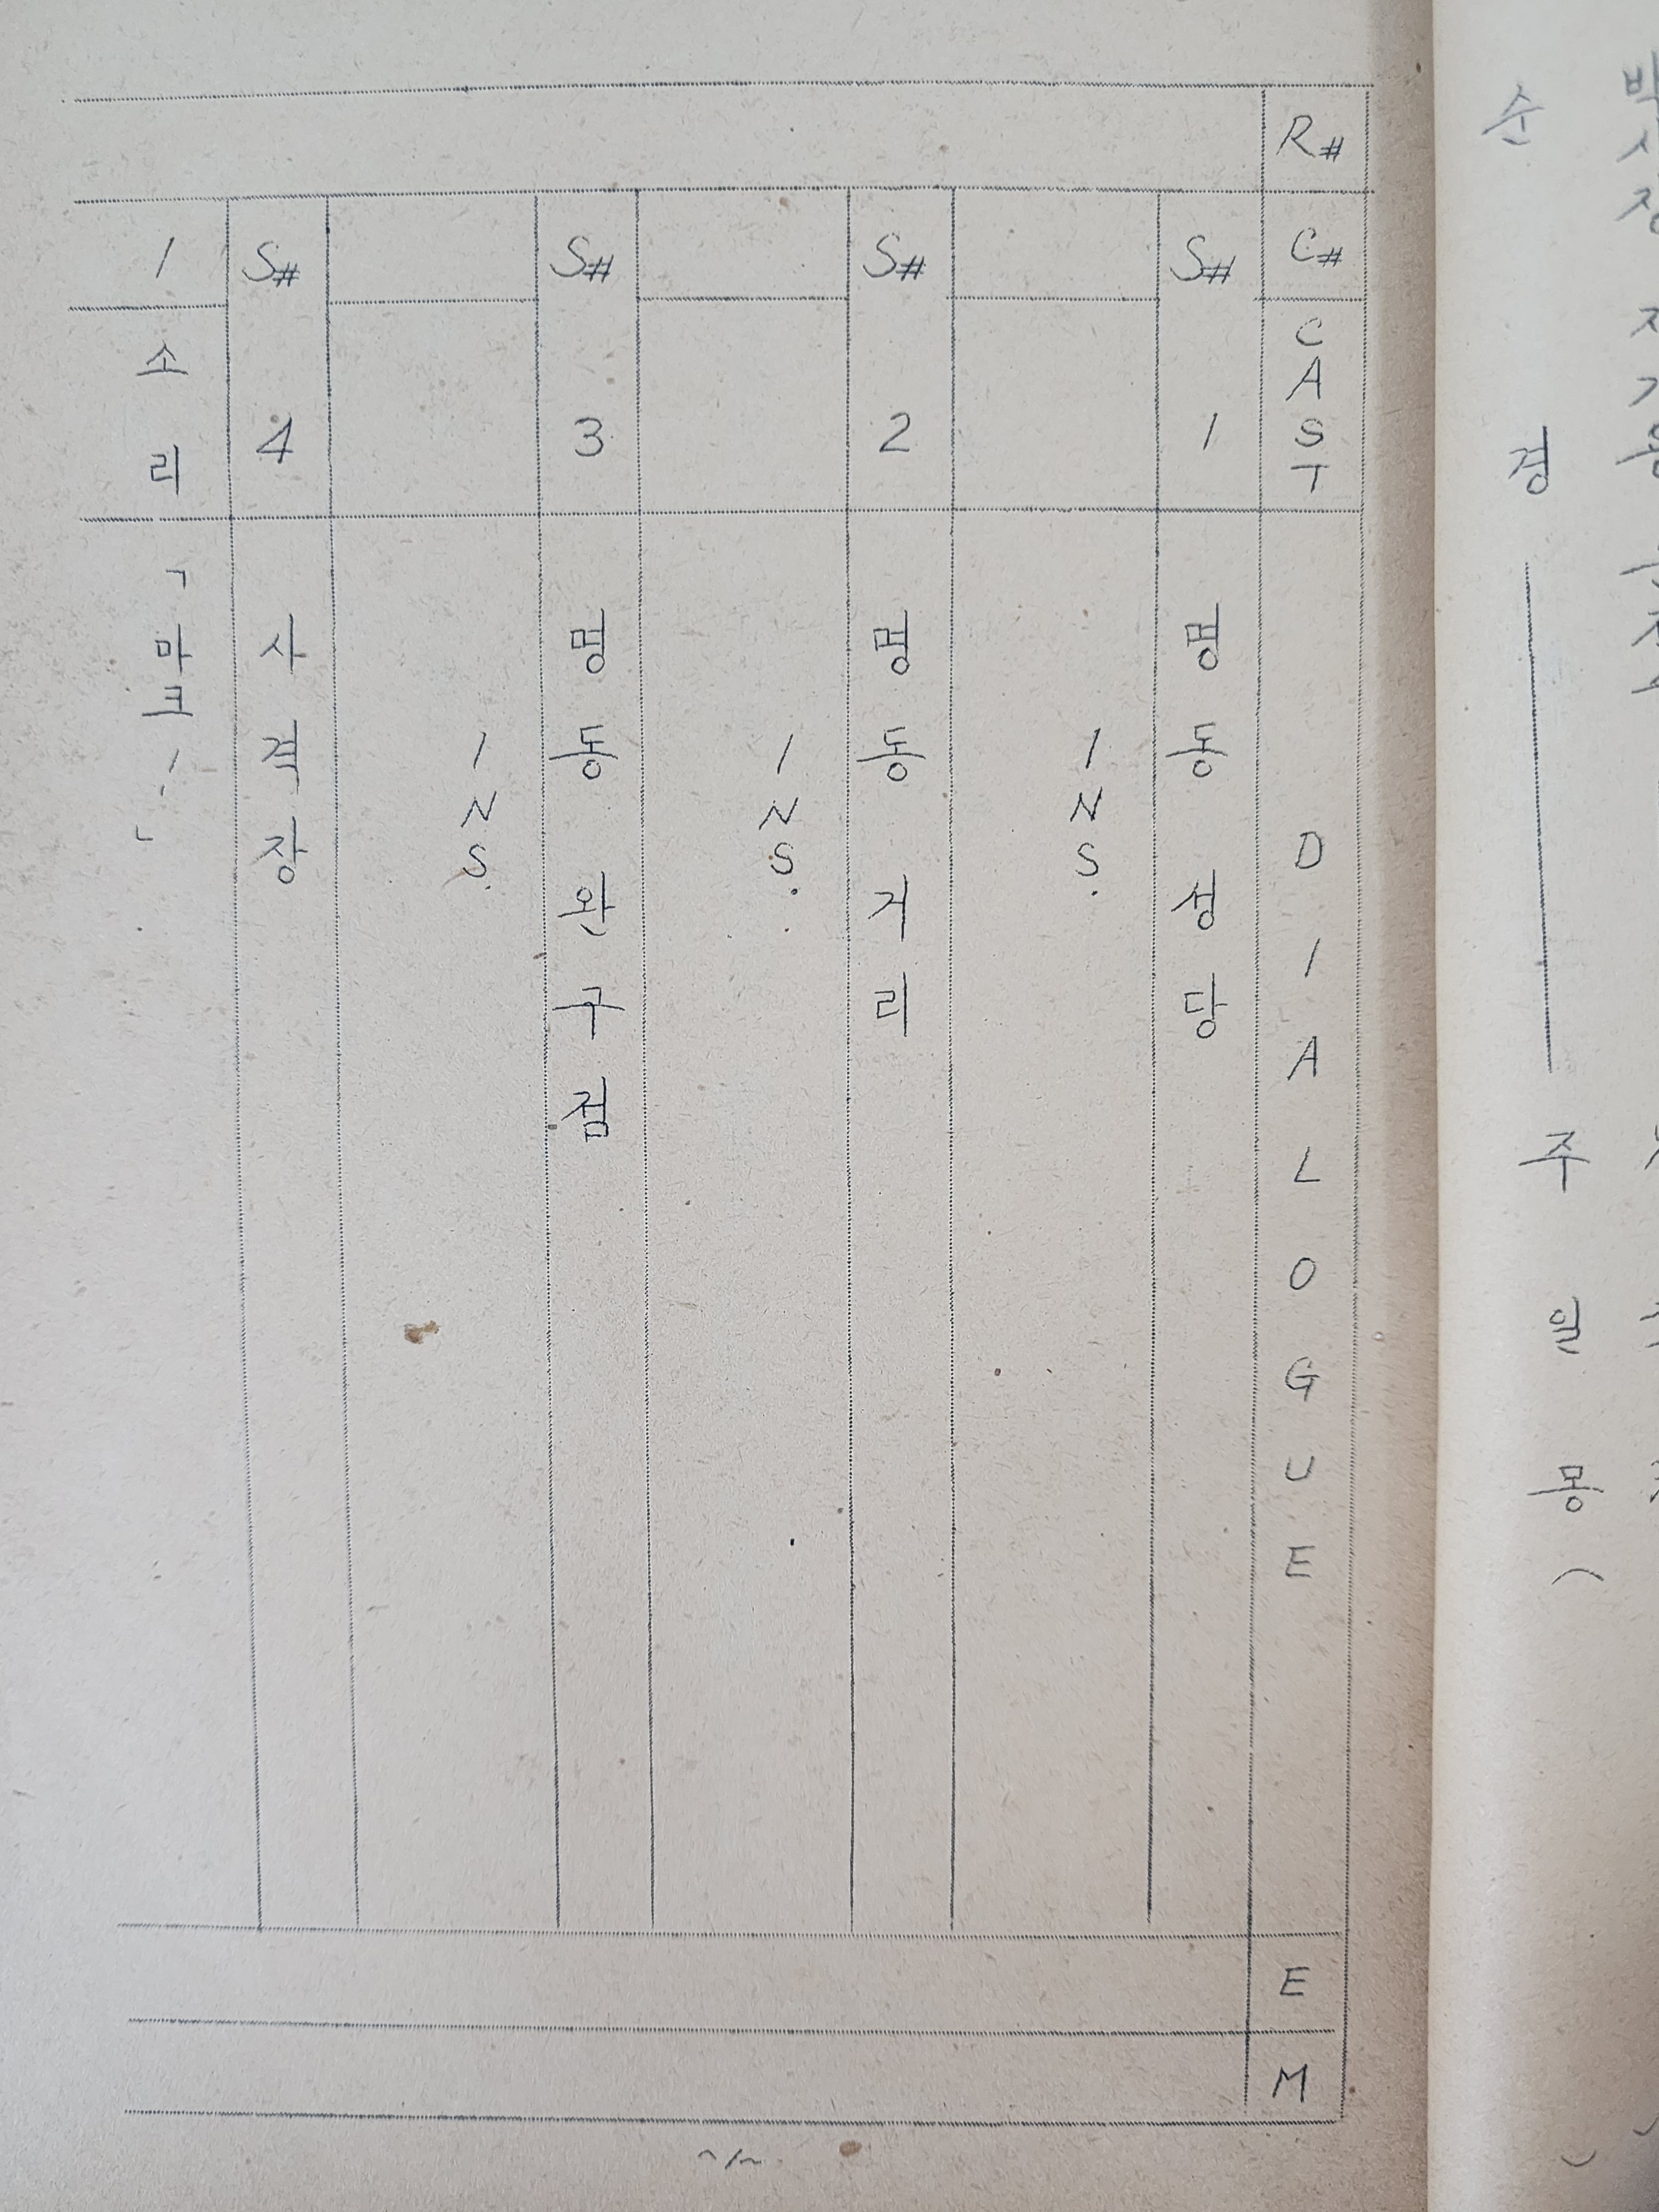 순 경 주 일 몽 (
R#
C#
CAST
DIALOGUE
E
M
S# 1 명동 성당
INS.
S# 2 명동 거리
INS.
S# 3 명동 완구점
INS.
S# 4 사격장
1 소리 「마크!」
~1~